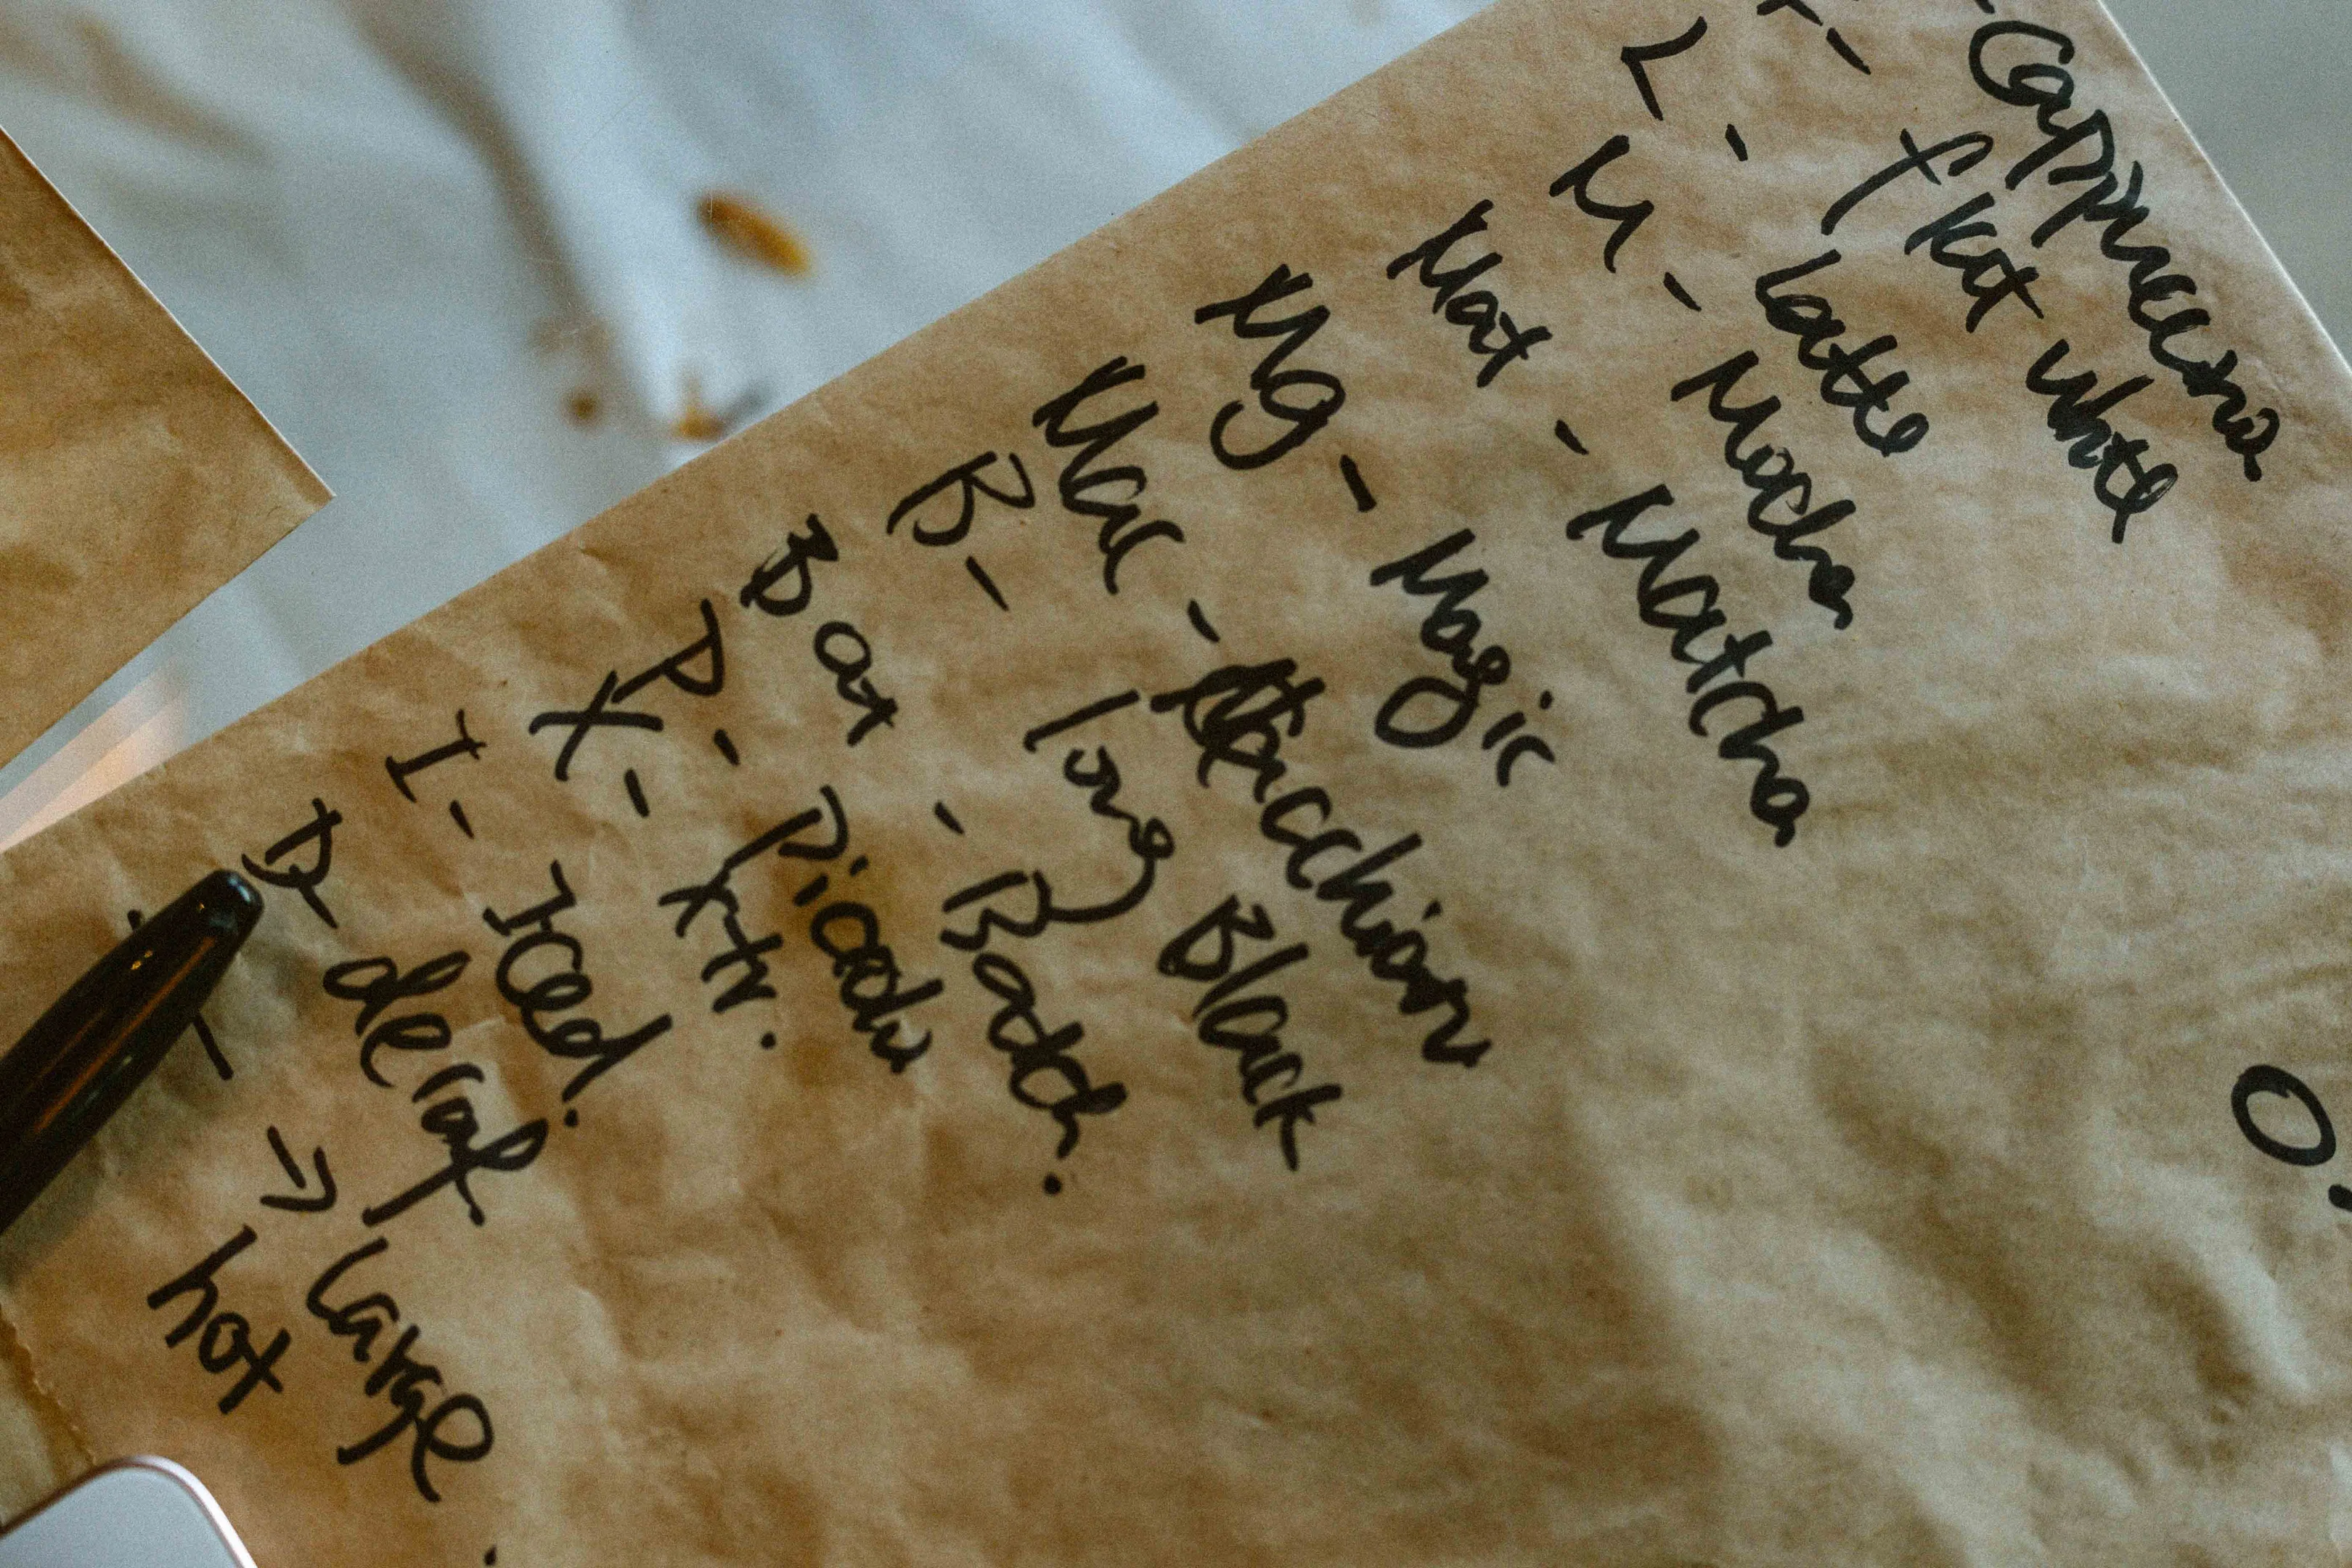 - Cappuccino
F - flat white
L - Latte
M - Mocha
Mat - Matcha
Mg - Magic
Mac - Macchiato
B - long Black
Bat - Batch.
P - Piccolo
X - Xtr.
I - Iced.
D - decaf.
→ Large
hot